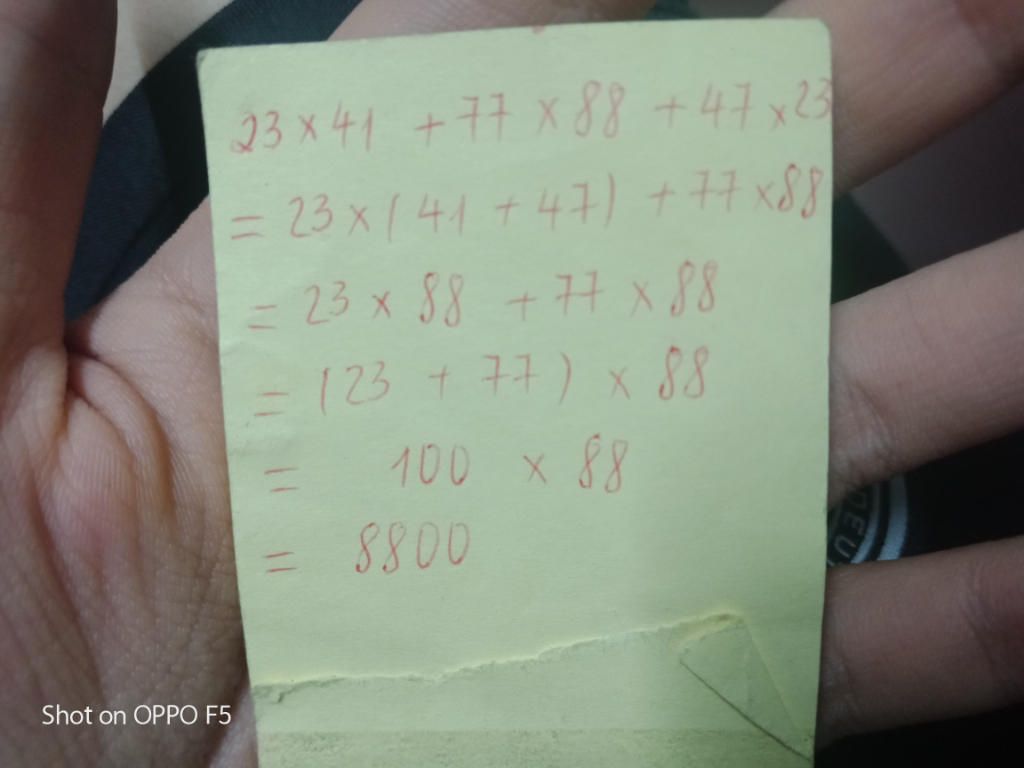 23 × 41 + 77 × 88 + 47 × 23
= 23 × (41 + 47) + 77 × 88
= 23 × 88 + 77 × 88
= (23 + 77) × 88
= 100 × 88
= 8800
Shot on OPPO F5